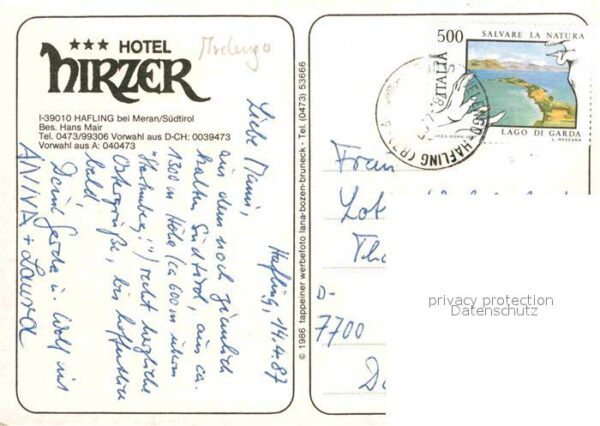 ★★★ HOTEL
HIRZER
I-39010 HAFLING bei Meran/Südtirol
Bes. Hans Mair
Tel. 0473/99306 Vorwahl aus D-CH: 0039473
Vorwahl aus A: 040473
Hafling, 14.4.87
Liebe Mami,
aus dem noch ziemlich
kalten Südtirol, aus ca.
1300 m Höhe (ca 600 m überm
"Hartenberg"!) recht herzliche
Ostergrüße, bis hoffentlich
bald
Deine Gerda u. Wolf mit
ANINA + Laura
© 1986 tappeiner werbefoto lana-bozen-bruneck · Tel. (0473) 53666
500 SALVARE LA NATURA
ITALIA
LAGO DI GARDA
HAFLING
Frau
Lot
D-
7700
privacy protection
Datenschutz